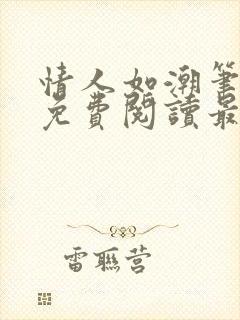 情人如潮筆
免費閱讀最
雷聯营